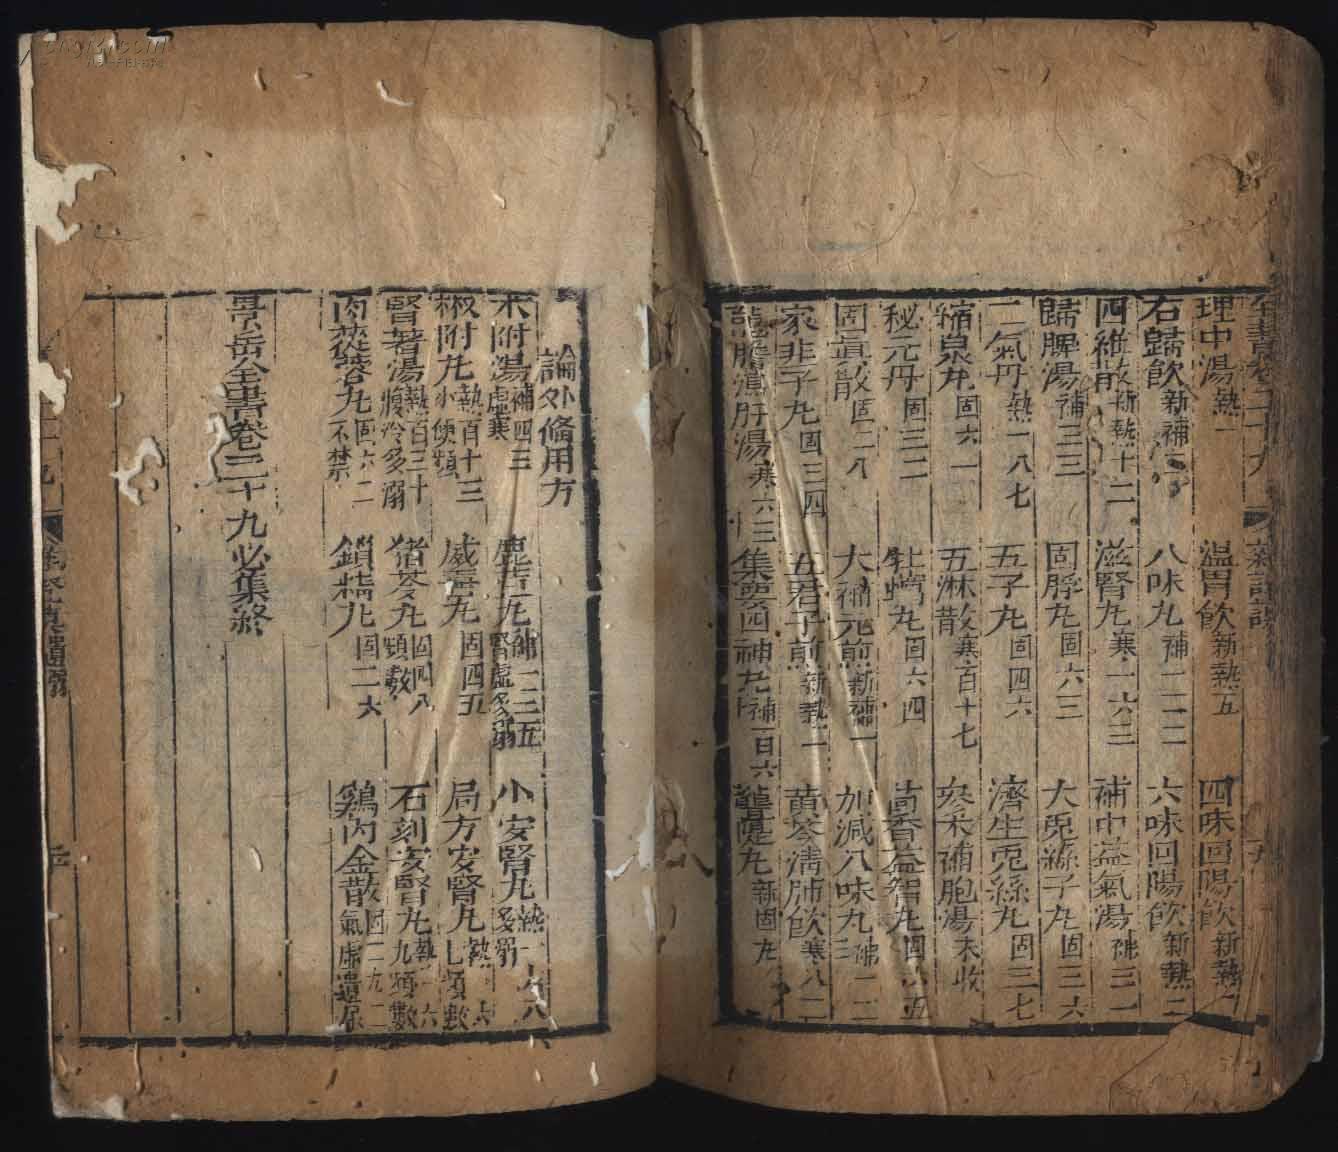 全書卷二十九 雜證謨
理中湯熱一 溫胃飲新熱五 四味回陽飲新熱一
右歸飲新補三 八味丸補一二一 六味回陽飲新熱二
四維散新熱十二 滋腎丸寒一六三 補中益氣湯補三一
歸脾湯補三三 固脬丸固六三 大兎絲子丸固三六
二氣丹熱一八七 五子丸固四六 濟生兎絲丸固三七
縮泉丸固六一 五淋散寒百十七 參朮補胞湯未收
秘元丹固三二 牡蠣丸固六四 茴香益智丸固六五
固眞散固二八 大補元煎新補一 加減八味丸補一二二
家韭子丸固三四 五君子煎新熱二 黃芩清肺飲寒八二
龍膽瀉肝湯寒六三 集要四神丸補一日六 鞏隄丸新固九
論外備用方
朮附湯補四三虛寒 鹿茸丸補一三五腎虛多溺 小安腎丸熱一六八多溺
椒附丸熱百十三小便頻 威喜丸固四五 局方安腎丸熱
腎著湯熱百三十腰冷多溺 猪苓丸固四八頻數 石刻安腎丸
肉蓯蓉丸固六二不禁 鎖精丸固二六 鷄內金散固二九二氣虛遺尿
景岳全書卷二十九必集終